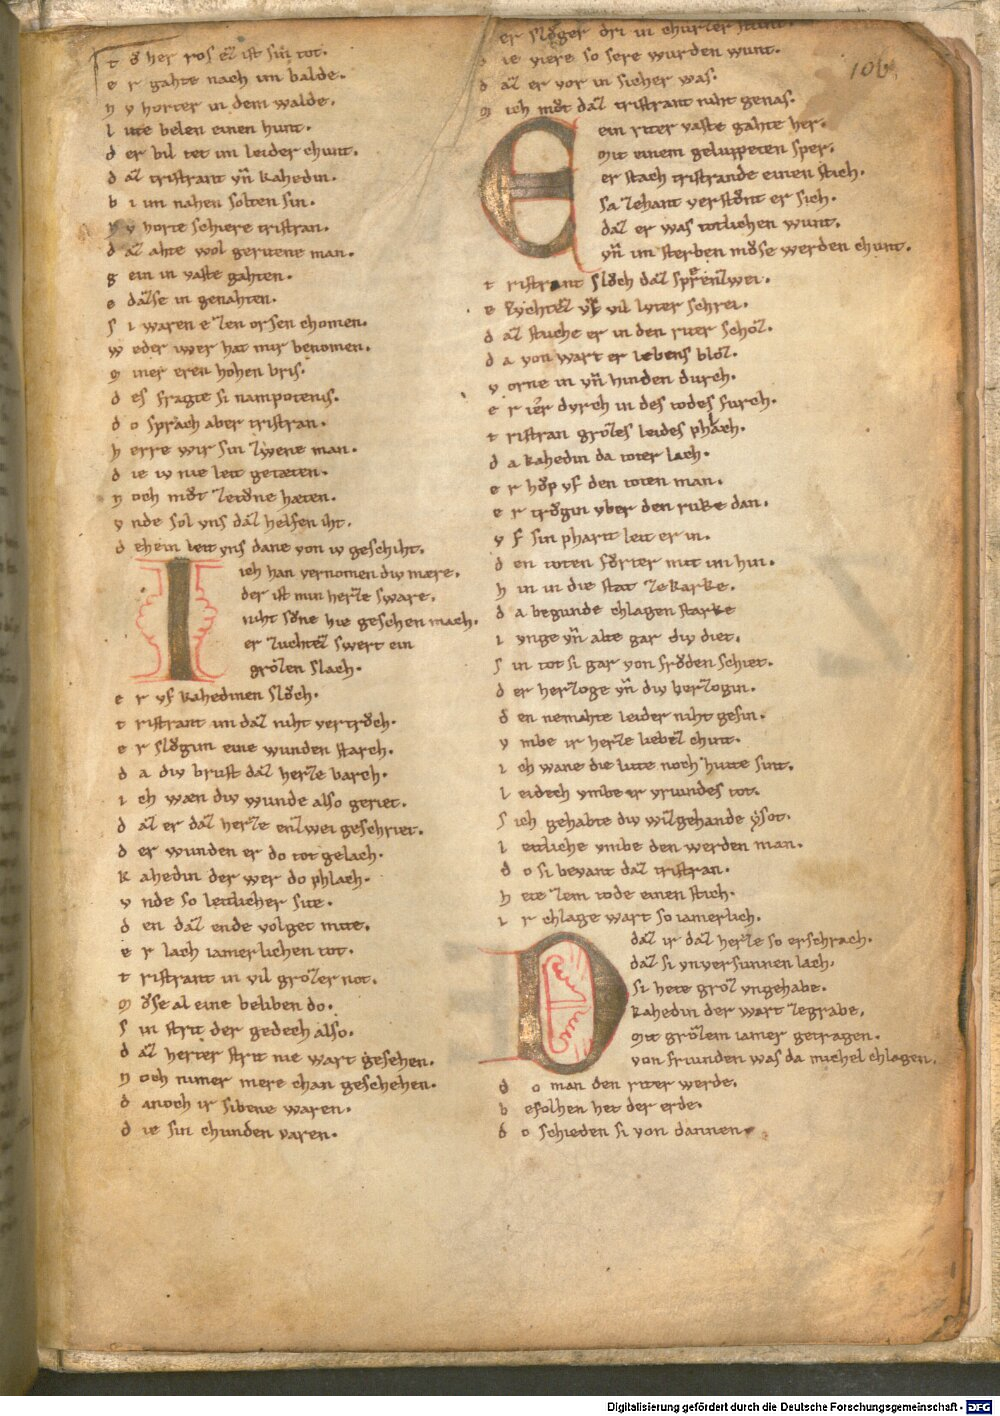 t ů her ros eʒ ist sin tot.
e r gahte nach im balde.
h v horter in dem walde.
l ute belen einen hunt.
d er bil tet im leider chunt.
d aʒ tristrant vñ kahedin.
b i im nahen solten sin.
h v horte schiere tristran.
d aʒ ahte wol geritene man.
g ein in vaste gahten.
e daʒse in genahten.
s i waren eʒen orsen chomen.
w eder iwer hat mir benomen.
m iner eren hohen bris.
d es fragte si nampotenis.
d o sprach aber tristran.
h erre wir sin ʒwene man.
d ie iv nie leit getæten.
n och můt ʒetůne hæten.
v nde sol vns daʒ helfen iht.
d ehein leit vns dane von iv geschiht.
I ich han vernomen div mære.
der ist min herʒe sware.
niht sůne hie geschen mach.
er ʒuchteʒ swert ein
groʒen slach.
e r vf kahedinen slůch.
t ristrant im daʒ niht vertrůch.
e r slůgim eine wunden starch.
d a div brust daʒ herʒe barch.
i ch wæn div wunde also geriet.
d aʒ er daʒ herʒe enʒwei geschriet.
d er wunden er do tot gelach.
k ahedin der wer do phlach.
v nde so leitlicher site.
d en daʒ ende volget mite.
e r lach iamerlichen tot.
t ristrant in vil groʒer not.
m ůse al eine beliben do.
s in strit der gedech also.
d aʒ herter strit nie wart gesehen.
n och nimer mere chan geschehen.
d anoch ir sibene waren.
d ie sin chunden varen.
er slůger dri in churʒer stunt.
d ie viere so sere wurden wunt.
d aʒ er vor in sicher was.
m ich můt daʒ tristrant niht genas.
E ein riter vaste gahte her.
mit einem geluppeten sper.
er stach tristrande einen stich.
sa ʒehant verstůnt er sich.
daʒ er was totlichen wunt.
vñ im sterben můse werden chunt.
t ristrant slůch daʒ sper enʒwei.
e Rvchteʒ vf vil lvter schrei.
d aʒ stuche er in den riter schoʒ.
d a von wart er lebens bloʒ.
v orne in vñ hinden durch.
e r ier dvrch in des todes furch.
t ristran groʒes leides phlach.
d a kahedin da toter lach.
e r hůp vf den toten man.
e r trůgin vber den ruke dan.
v f sin pharit leit er in.
d en toten fůrter mit im hin.
h in in die stat ʒe karke.
d a begunde chlagen starke
i vnge vñ alte gar div diet.
s in tot si gar von frůden schiet.
d er herʒoge vñ div herʒogin.
d en nemahte leider niht gesin.
v mbe ir herʒe liebeʒ chint.
i ch wane die lute noch hute sint.
l eidech vmbe ir vriundes tot.
s ich gehabte div wiʒgehande ẏsot.
l eitliche vmbe den werden man.
d o si bevant daʒ tristran.
h ete ʒem tode einen stich.
i r chlage wart so iamerlich.
D daʒ ir daʒ herʒe so erschrach.
daʒ si vnversunnen lach.
si hete groʒ vngehabe.
kahedin der wart ʒegrabe.
mit groʒem iamer getragen.
von friunden was da michel chlagen.
d o man den riter werde.
b evolhen het der erde.
d o schieden si von dannen.
106
Digitalisierung gefördert durch die Deutsche Forschungsgemeinschaft - DFG